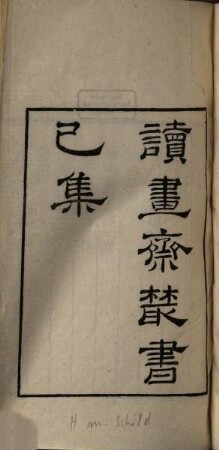 讀畫齋叢書
己集
H m. Schild